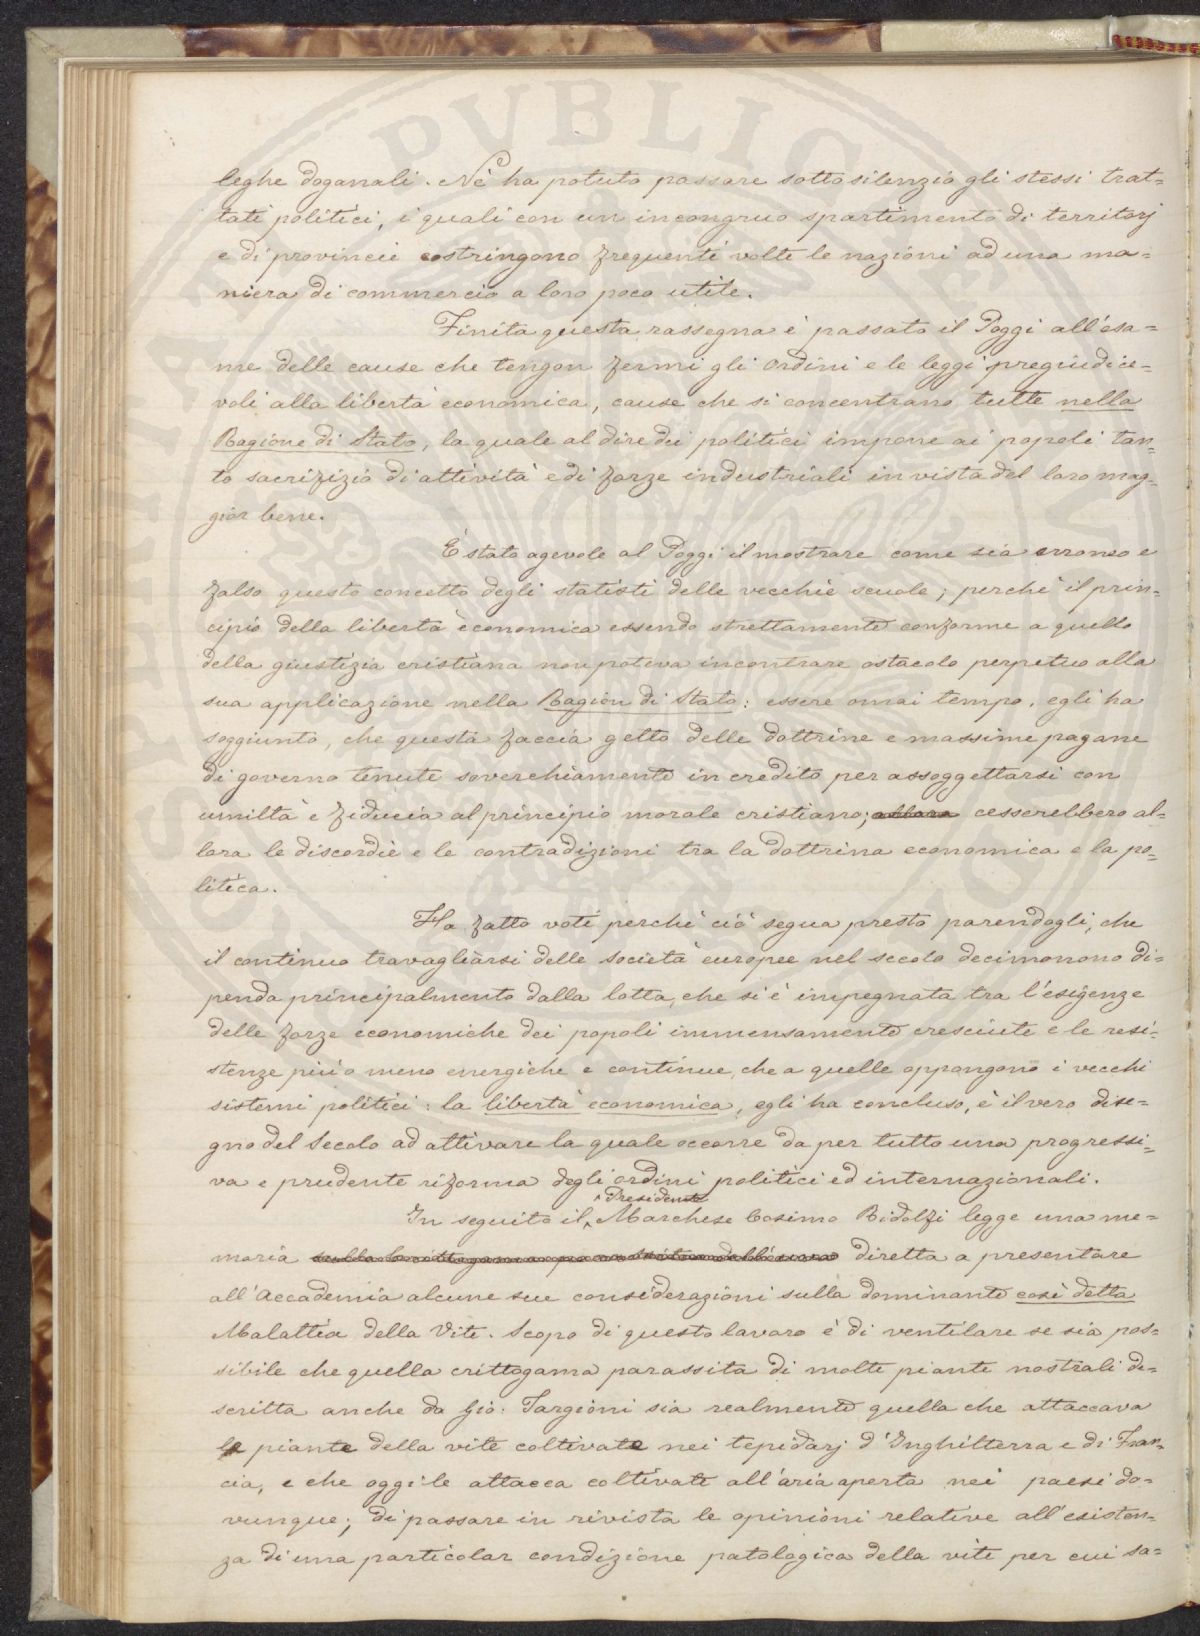 leghe doganali. Nè ha potuto passare sotto silenzio gli stessi trat=
tati politici, i quali con un incongruo spartimento di territorj
e di provincie costringono frequenti volte le nazioni ad una ma=
niera di commercio a loro poco utile.
Finita questa rassegna è passato il Poggi all'esa=
me delle cause che tengon fermi gli ordini e le leggi pregiudice=
voli alla libertà economica, cause che si concentrano tutte nella
Ragione di Stato, la quale al dire dei politici impone ai popoli tan=
to sacrifizio di attività e di forze industriali in vista del loro mag=
gior bene.
È stato agevole al Poggi il mostrare come sia erroneo e
falso questo concetto degli statisti delle vecchie scuole; perchè il prin=
cipio della libertà economica essendo strettamente conforme a quello
della giustizia cristiana non poteva incontrare ostacolo perpetuo alla
sua applicazione nella Ragion di Stato: essere omai tempo, egli ha
soggiunto, che questa faccia getto delle dottrine e massime pagane
di governo tenute soverchiamente in credito per assoggettarsi con
umiltà e fiducia al principio morale cristiano; allora cesserebbero al=
lora le discordie e le contradizioni tra la dottrina economica e la po=
litica.
Ha fatto voti perchè ciò segua presto parendogli, che
il continuo travagliarsi delle società europee nel secolo decimonono di=
penda principalmente dalla lotta, che si è impegnata tra l'esigenze
delle forze economiche dei popoli immensamente cresciute e le resi=
stenze più o meno energiche e continue, che a quelle oppongono i vecchi
sistemi politici: la libertà economica, egli ha concluso, è il vero dise=
gno del Secolo ad attivare la quale occorre da per tutto una progressi=
va e prudente riforma degli ordini politici ed internazionali.
Presidente
In seguito il, Marchese Cosimo Ridolfi legge una me=
moria sulla Crittogama parassita dell'uva diretta a presentare
all'Accademia alcune sue considerazioni sulla dominante così detta
Malattia della Vite. Scopo di questo lavoro è di ventilare se sia pos=
sibile che quella crittogama parassita di molte piante nostrali de=
scritta anche da Gio: Targioni sia realmente quella che attaccava
le piante della vite coltivate nei tepidarj d'Inghilterra e di Fran=
cia, e che oggi le attacca coltivate all'aria aperta nei paesi do=
vunque; di passare in rivista le opinioni relative all'esisten=
za di una particolar condizione patologica della vite per cui sa=